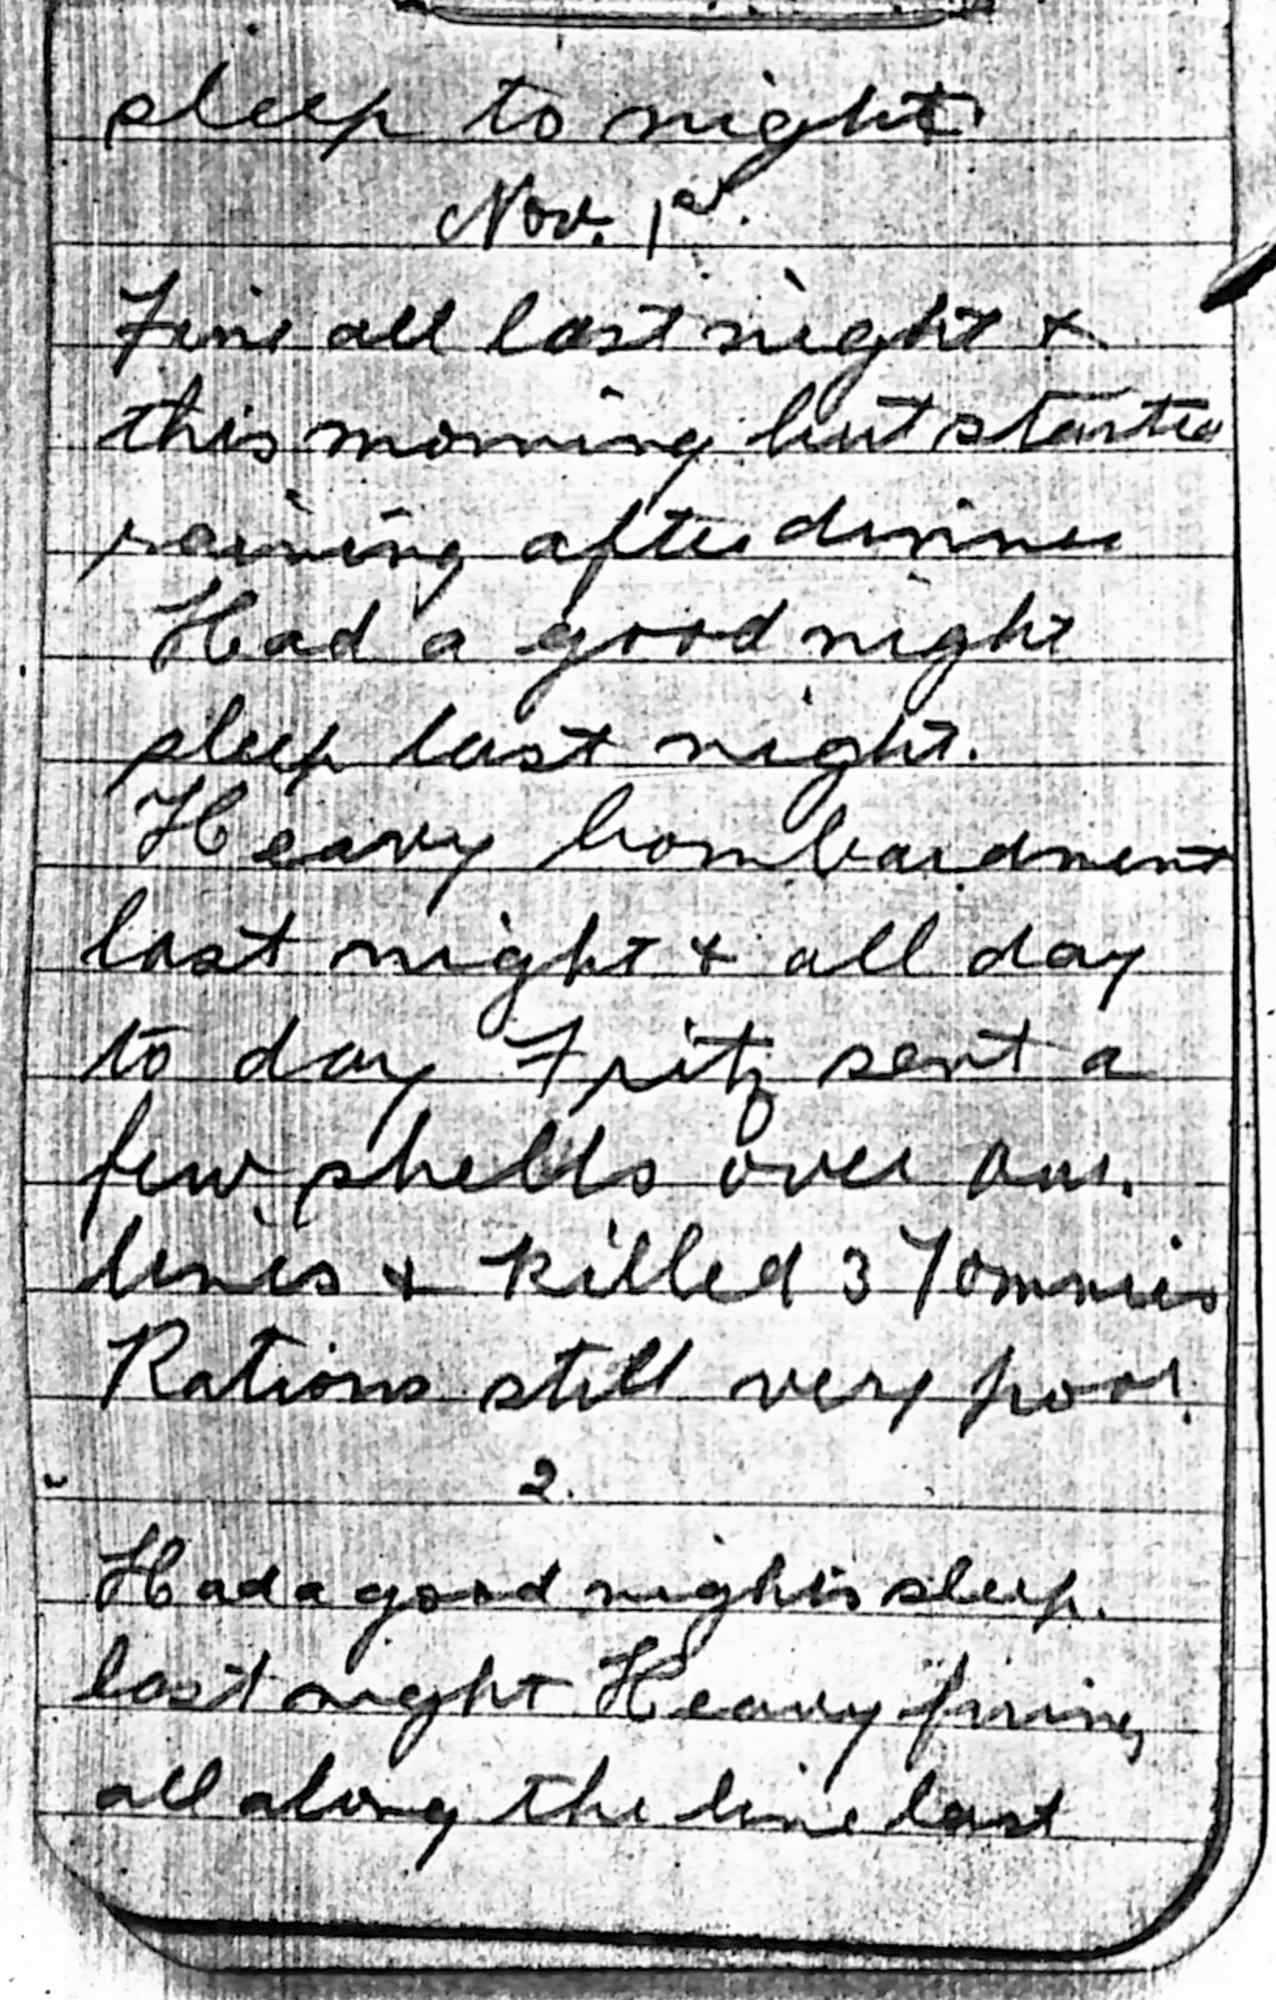 sleep to night
Nov. 1st.
Fine all last night &
this morning but started
raining after dinner
Had a good night
sleep last night.
Heavy bombardment
last night & all day
to day Fritz sent a
few shells over our
lines & killed 3 Tommies
Rations still very poor.
2.
Had a good nights sleep.
last night Heavy firing
all along the line last